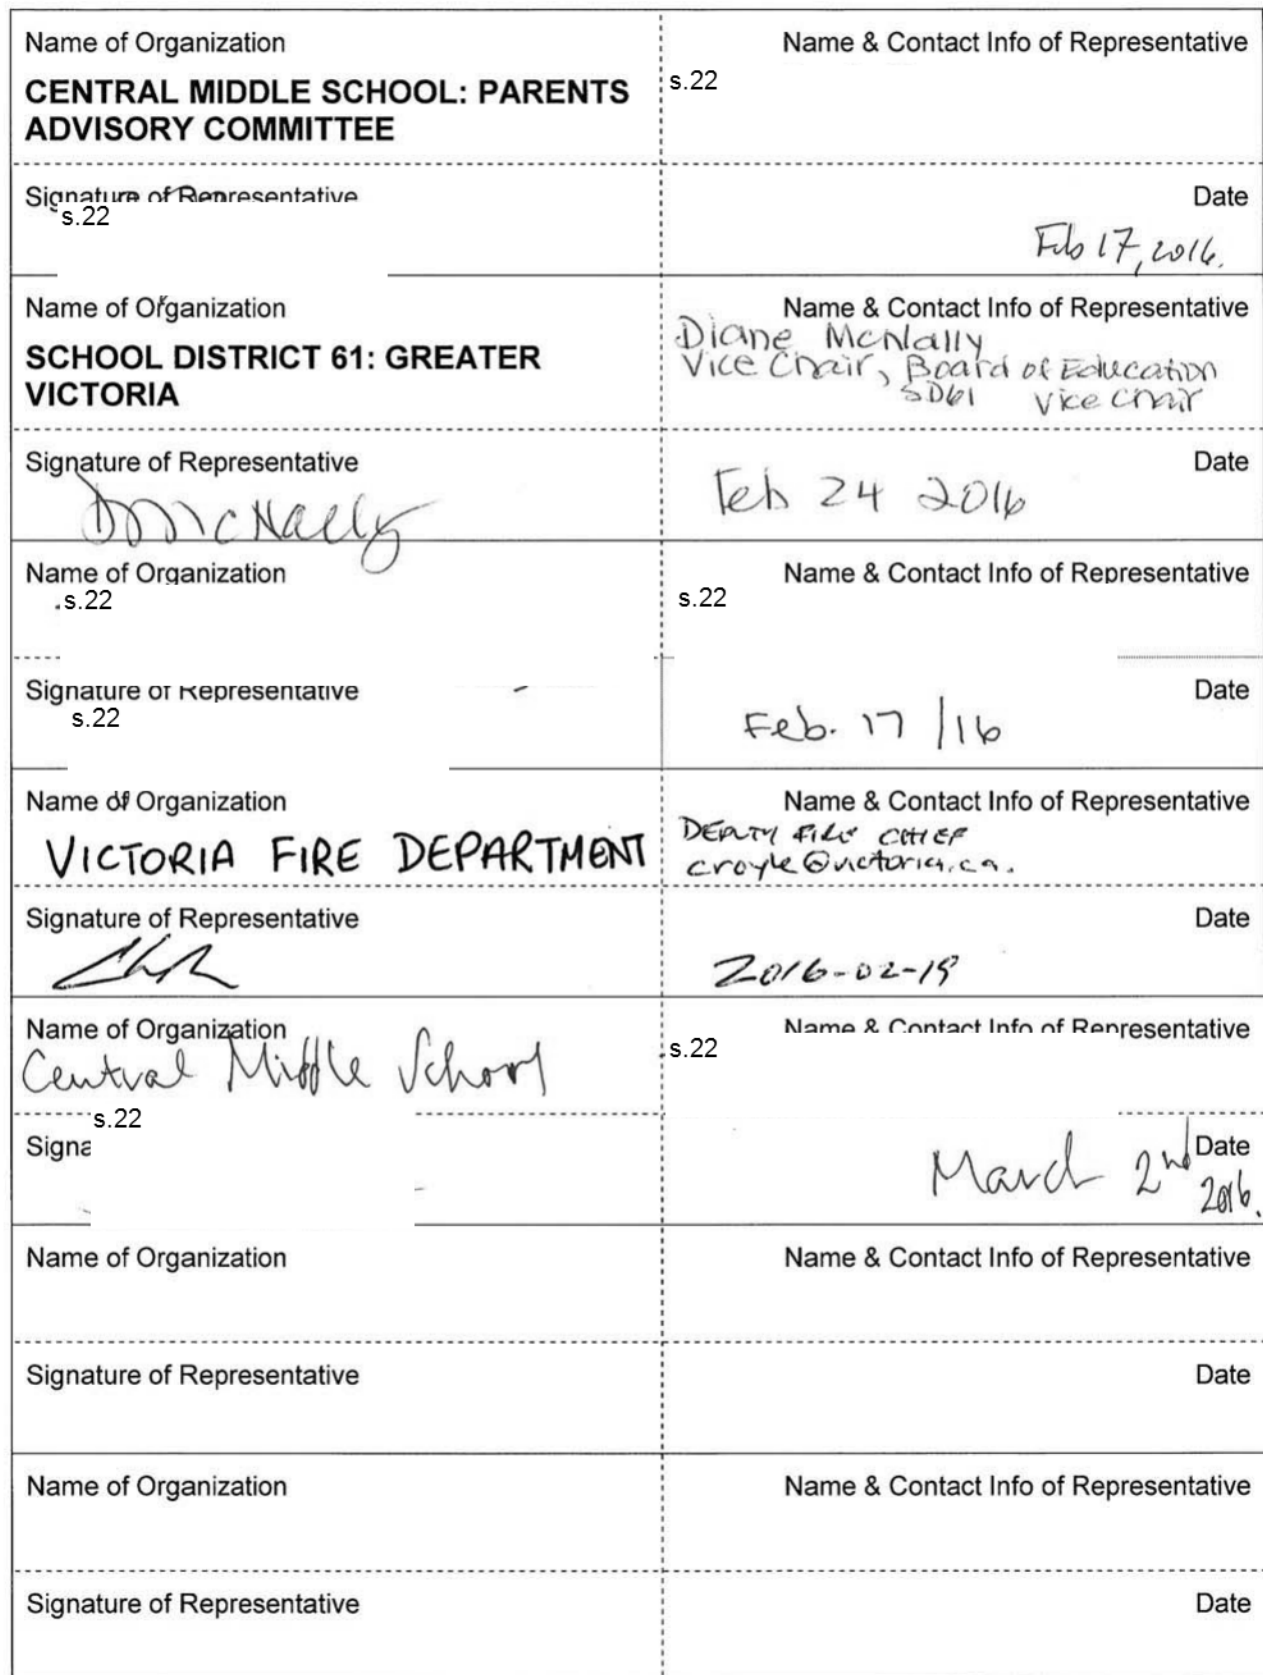 Name of Organization
Name & Contact Info of Representative
CENTRAL MIDDLE SCHOOL: PARENTS
ADVISORY COMMITTEE
s.22
Signature of Representative
s.22
Date
Feb 17, 2016.
Name of Organization
Name & Contact Info of Representative
SCHOOL DISTRICT 61: GREATER
VICTORIA
Diane McNally
Vice Chair, Board of Education
SD61 Vice Chair
Signature of Representative
DMcNally
Date
Feb 24 2016
Name of Organization
s.22
Name & Contact Info of Representative
s.22
Signature of Representative
s.22
Date
Feb. 17 /16
Name of Organization
VICTORIA FIRE DEPARTMENT
Name & Contact Info of Representative
DEPUTY FIRE CHIEF
croyle@victoria.ca.
Signature of Representative
Date
2016-02-19
Name of Organization
Central Middle School
Name & Contact Info of Representative
s.22
s.22
Signa
Date
March 2nd
2016.
Name of Organization
Name & Contact Info of Representative
Signature of Representative
Date
Name of Organization
Name & Contact Info of Representative
Signature of Representative
Date